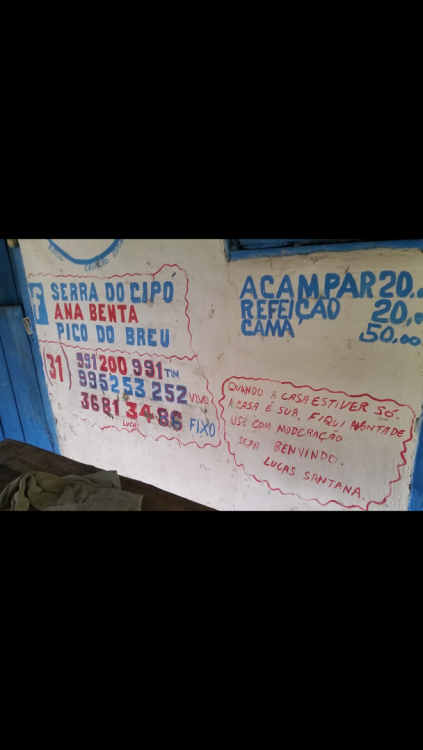 f
SERRA DO CIPÓ
ANA BENTA
PICO DO BREU
(31) 991 200 991 TIM
995253 252 VIVO
3681 3486 FIXO
LUCAS
ACAMPAR 20,00
REFEIÇÃO 20,00
CAMA 50,00
QUANDO A CASA ESTIVER SÓ.
A CASA É SUA, FIQUI AVONTADE
USE COM MODERAÇÃO
SEJA BENVINDO.
LUCAS SANTANA.